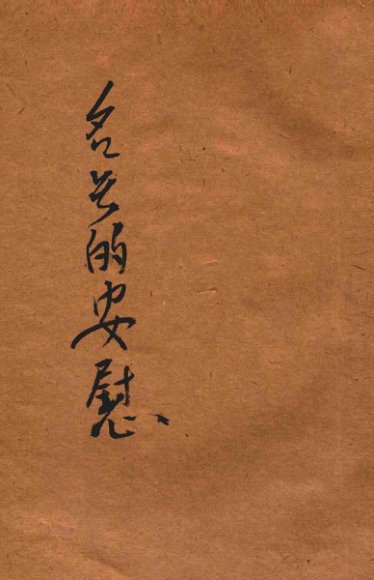 名的安慰